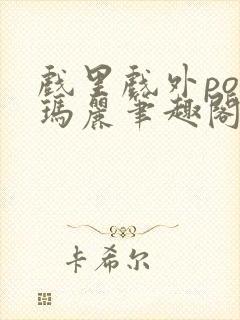 戲里戲外po
瑪麗筆趣閣
卡希尔